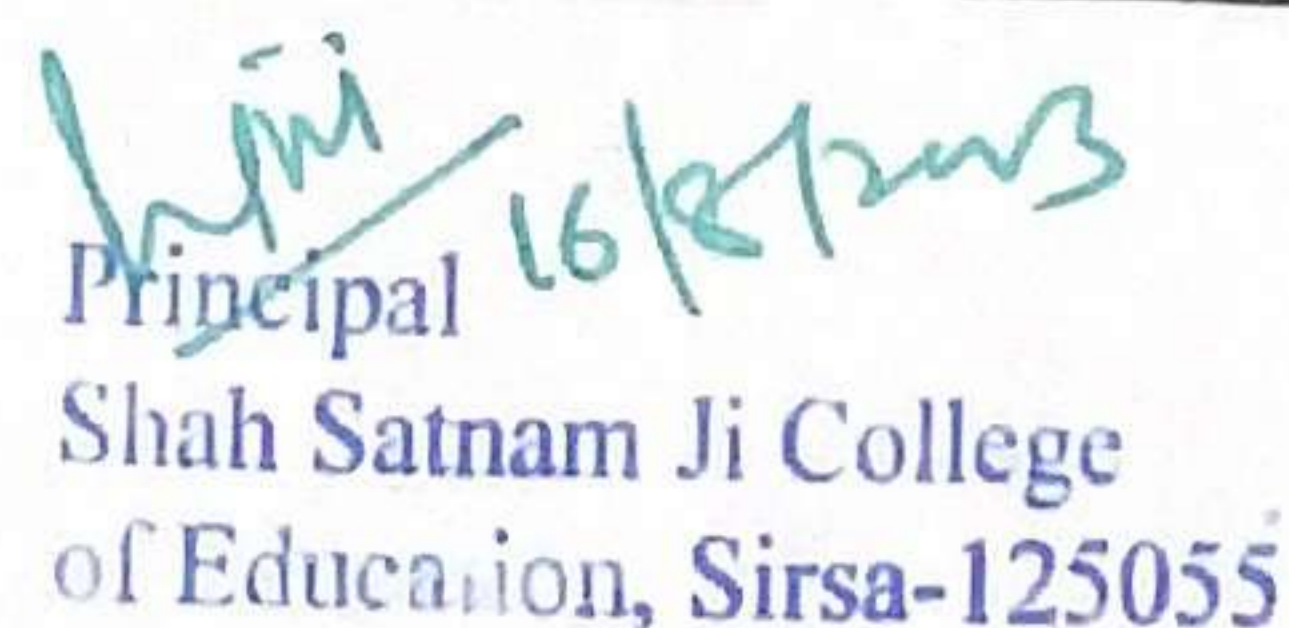 16/8/2023
Principal
Shah Satnam Ji College
of Education, Sirsa-125055